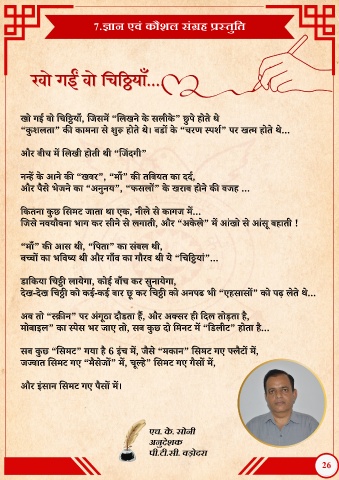 7.ज्ञान एवं कौशल संग्रह प्रस्तुति
खो गईं वो चिठ्ठियाँ...
खो गई वो चिठ्ठियाँ, जिसमें “लिखने के सलीके” छुपे होते थे
“कुशलता” की कामना से शुरू होते थे। बडों के “चरण स्पर्श” पर खत्म होते थे...
और बीच में लिखी होती थी “जिंदगी”
नन्हें के आने की “खबर”, “माँ” की तबियत का दर्द,
और पैसे भेजने का “अनुनय”, “फसलों” के खराब होने की वजह ...
कितना कुछ सिमट जाता था एक, नीले से कागज में...
जिसे नवयौवना भाग कर सीने से लगाती, और “अकेले” में आंखो से आंसू बहाती !
“माँ” की आस थी, “पिता” का संबल थी,
बच्चों का भविष्य थी और गाँव का गौरव थी ये “चिठ्ठियां”...
डाकिया चिठ्ठी लायेगा, कोई बाँच कर सुनायेगा,
देख-देख चिठ्ठी को कई-कई बार छू कर चिठ्ठी को अनपढ भी “एहसासों” को पढ़ लेते थे...
अब तो “स्क्रीन” पर अंगूठा दौडता हैं, और अक्सर ही दिल तोड़ता है,
मोबाइल” का स्पेस भर जाए तो, सब कुछ दो मिनट में “डिलीट” होता है...
सब कुछ “सिमट” गया है 6 इंच में, जैसे “मकान” सिमट गए फ्लैटों में,
जज्बात सिमट गए “मैसेजों” में, चूल्हे” सिमट गए गैसों में,
और इंसान सिमट गए पैसों में।
एच. के. सोनी
अनुदेशक
पी.टी.सी. वड़ोदरा
26